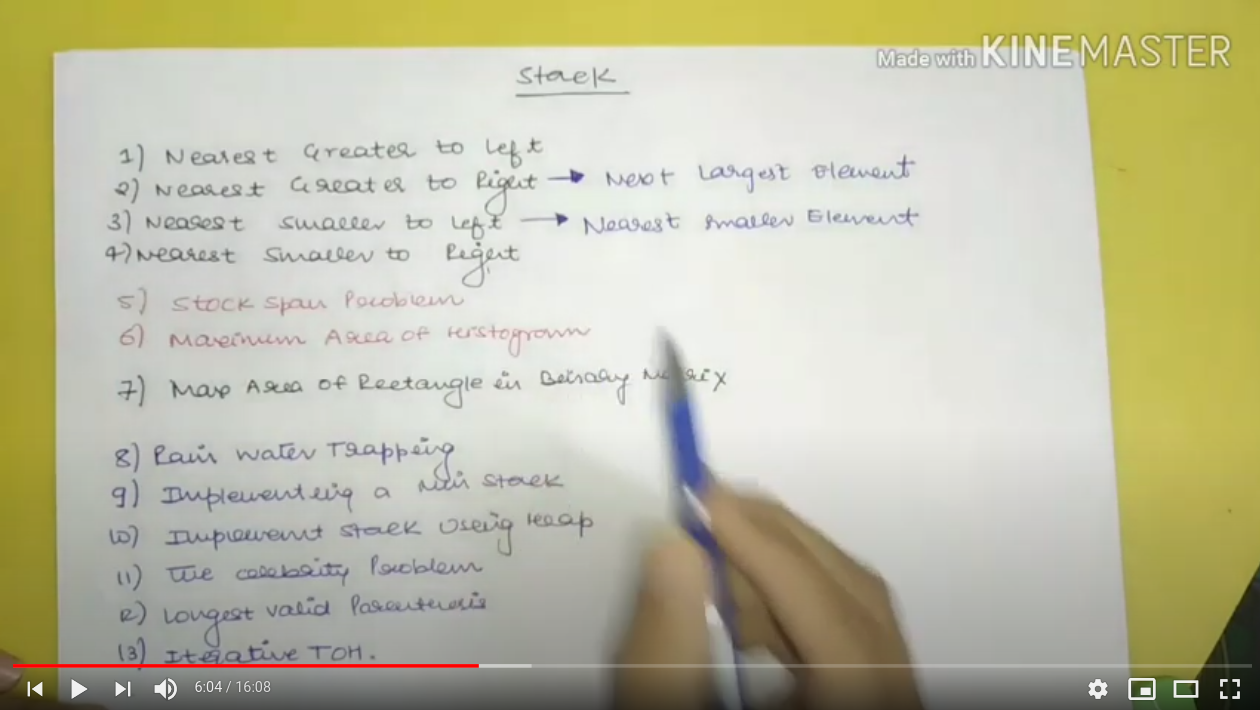 Made with KINEMASTER
Stack
1) Nearest Greater to Left
2) Nearest Greater to Right → Next Largest Element
3) Nearest Smaller to Left → Nearest Smaller Element
4) Nearest Smaller to Right
5) Stock Span Problem
6) Maximum Area of Histogram
7) Max Area of Rectangle in Binary Matrix
8) Rain Water Trapping
9) Implementing a Min Stack
10) Implement Stack Using Heap
11) The Celebrity Problem
12) Longest valid Parenthesis
13) Iterative TOH.
6:04 / 16:08